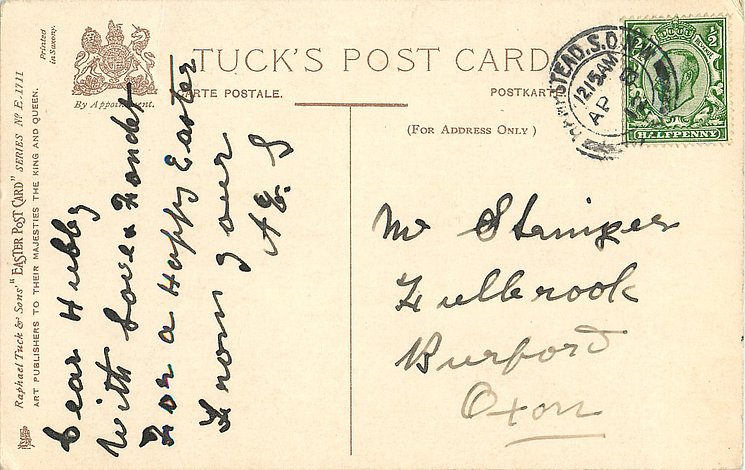 TUCK'S POST CARD
CARTE POSTALE.
POSTKARTE
(FOR ADDRESS ONLY)
By Appointment.
Printed
in Saxony.
Raphael Tuck & Sons' "EASTER POST CARD" SERIES Nº E. 1711
ART PUBLISHERS TO THEIR MAJESTIES THE KING AND QUEEN.
HAMPSTEAD.S.O. N.W
12.15AM
AP
HALFPENNY
Dear Hubby
With Love & Fondest
For a Happy Easter
From your
A E S
Mr Stamper
Fullbrook
Burford
Oxon